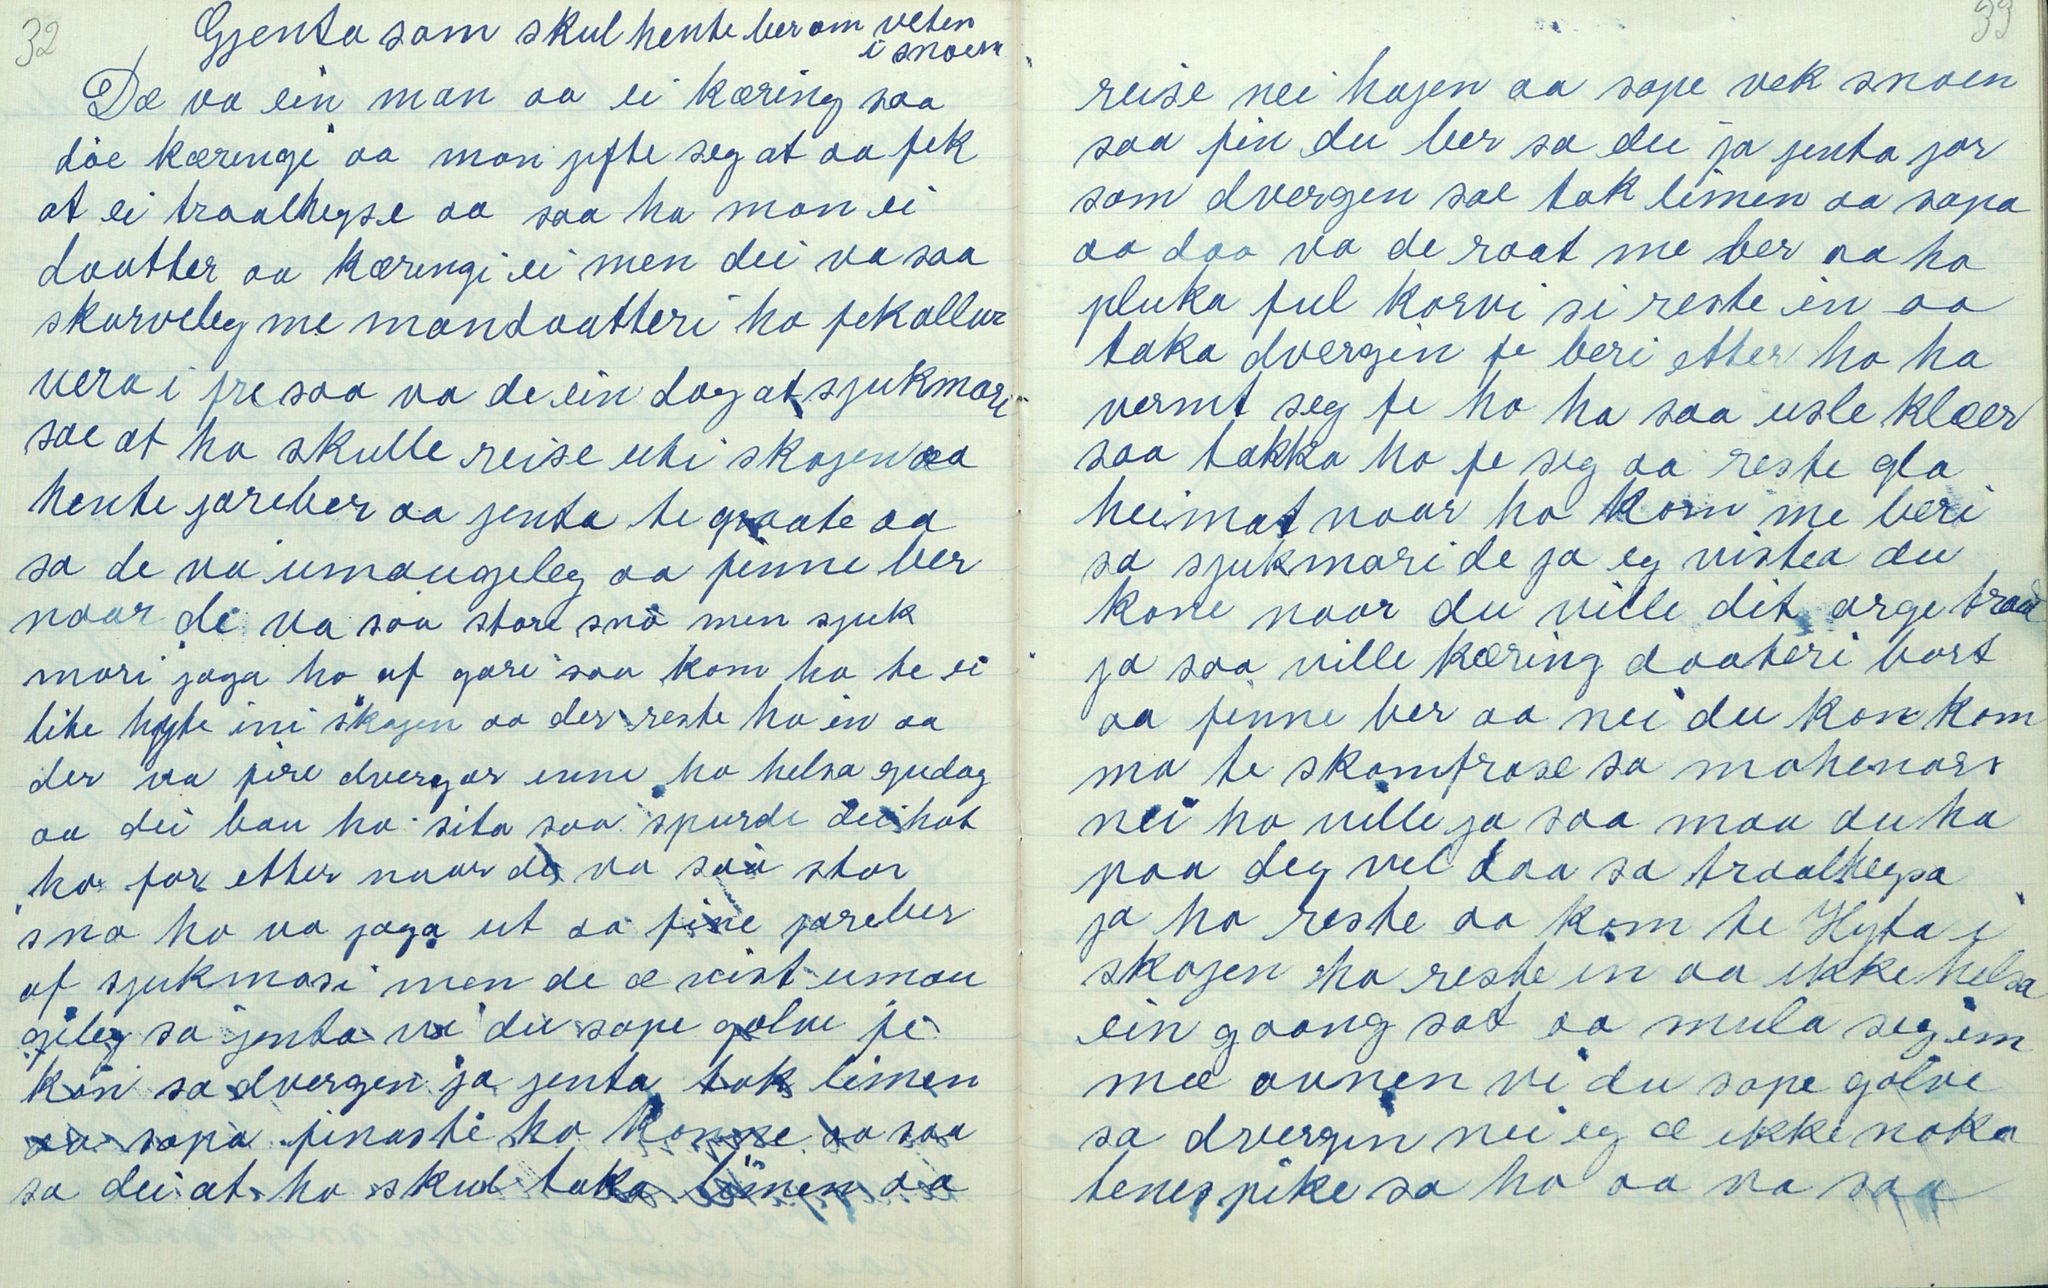 32
Gjenta som skul hente ber om veten
i snoen
Dæ va ein man aa ei kæring saa
döe kæringi aa man jifte seg at aa fek
at ei traalhegse aa saa ha man ei
daatter aa kæringi ei men dei va saa
skarveleg me mandaatteri ho fek allur
vera i fre saa va de ein dag at sjukmari
sae at ho skulle reise uti skogen aa
hente jareber aa jenta te graate aa
sa de va umaugeleg aa finne ber
naar de va saa store snö men sjuk
mari jaga ho af gare saa kom ho te ei
lite hyte ini skogen aa der reste ho in aa
der va fire dvergar inne ho helsa gudag
aa dei bau ho sita saa spurde dei hot
ho for etter naar de va saa stor
snø ho va jaga ut aa fine jareber
af sjukmari men de æ vist umau
gileg sa jenta vi du sope golve fe
kön sa dvergen ja jenta tok limen
aa sopa finaste ho konne aa saa
sa dei at ho skul taka limen aa
33
reise nei hagen aa sope vek snoen
saa fin du ber sa dei ja jenta jor
som dvergen sae tok limen aa sopa
aa daa va de raat me ber aa ho
pluka ful korvi si reste in aa
taka dvergin fe beri etter ho ha
vermt seg fe ho ha saa usle klæer
saa takka ho fe seg aa reste gla
heimat naar ho kom me beri
sa sjukmari de ja eg vistea du
kone naar du ville dit arge traal
ja saa ville kæring daateri bort
aa finne ber aa nei du kan kom
ma te skamfrose sa mohenars
nei ho ville ja saa maa du ha
paa deg vel daa sa traalhegsa
ja ho reste aa kom te Hyta i
skogen ho reste in aa ikke helsa
ein gaang sat aa mula seg im
mæ ovnen vi du sope golve
sa dvergin nei eg æ ikke noka
tenespike sa ho aa va saa